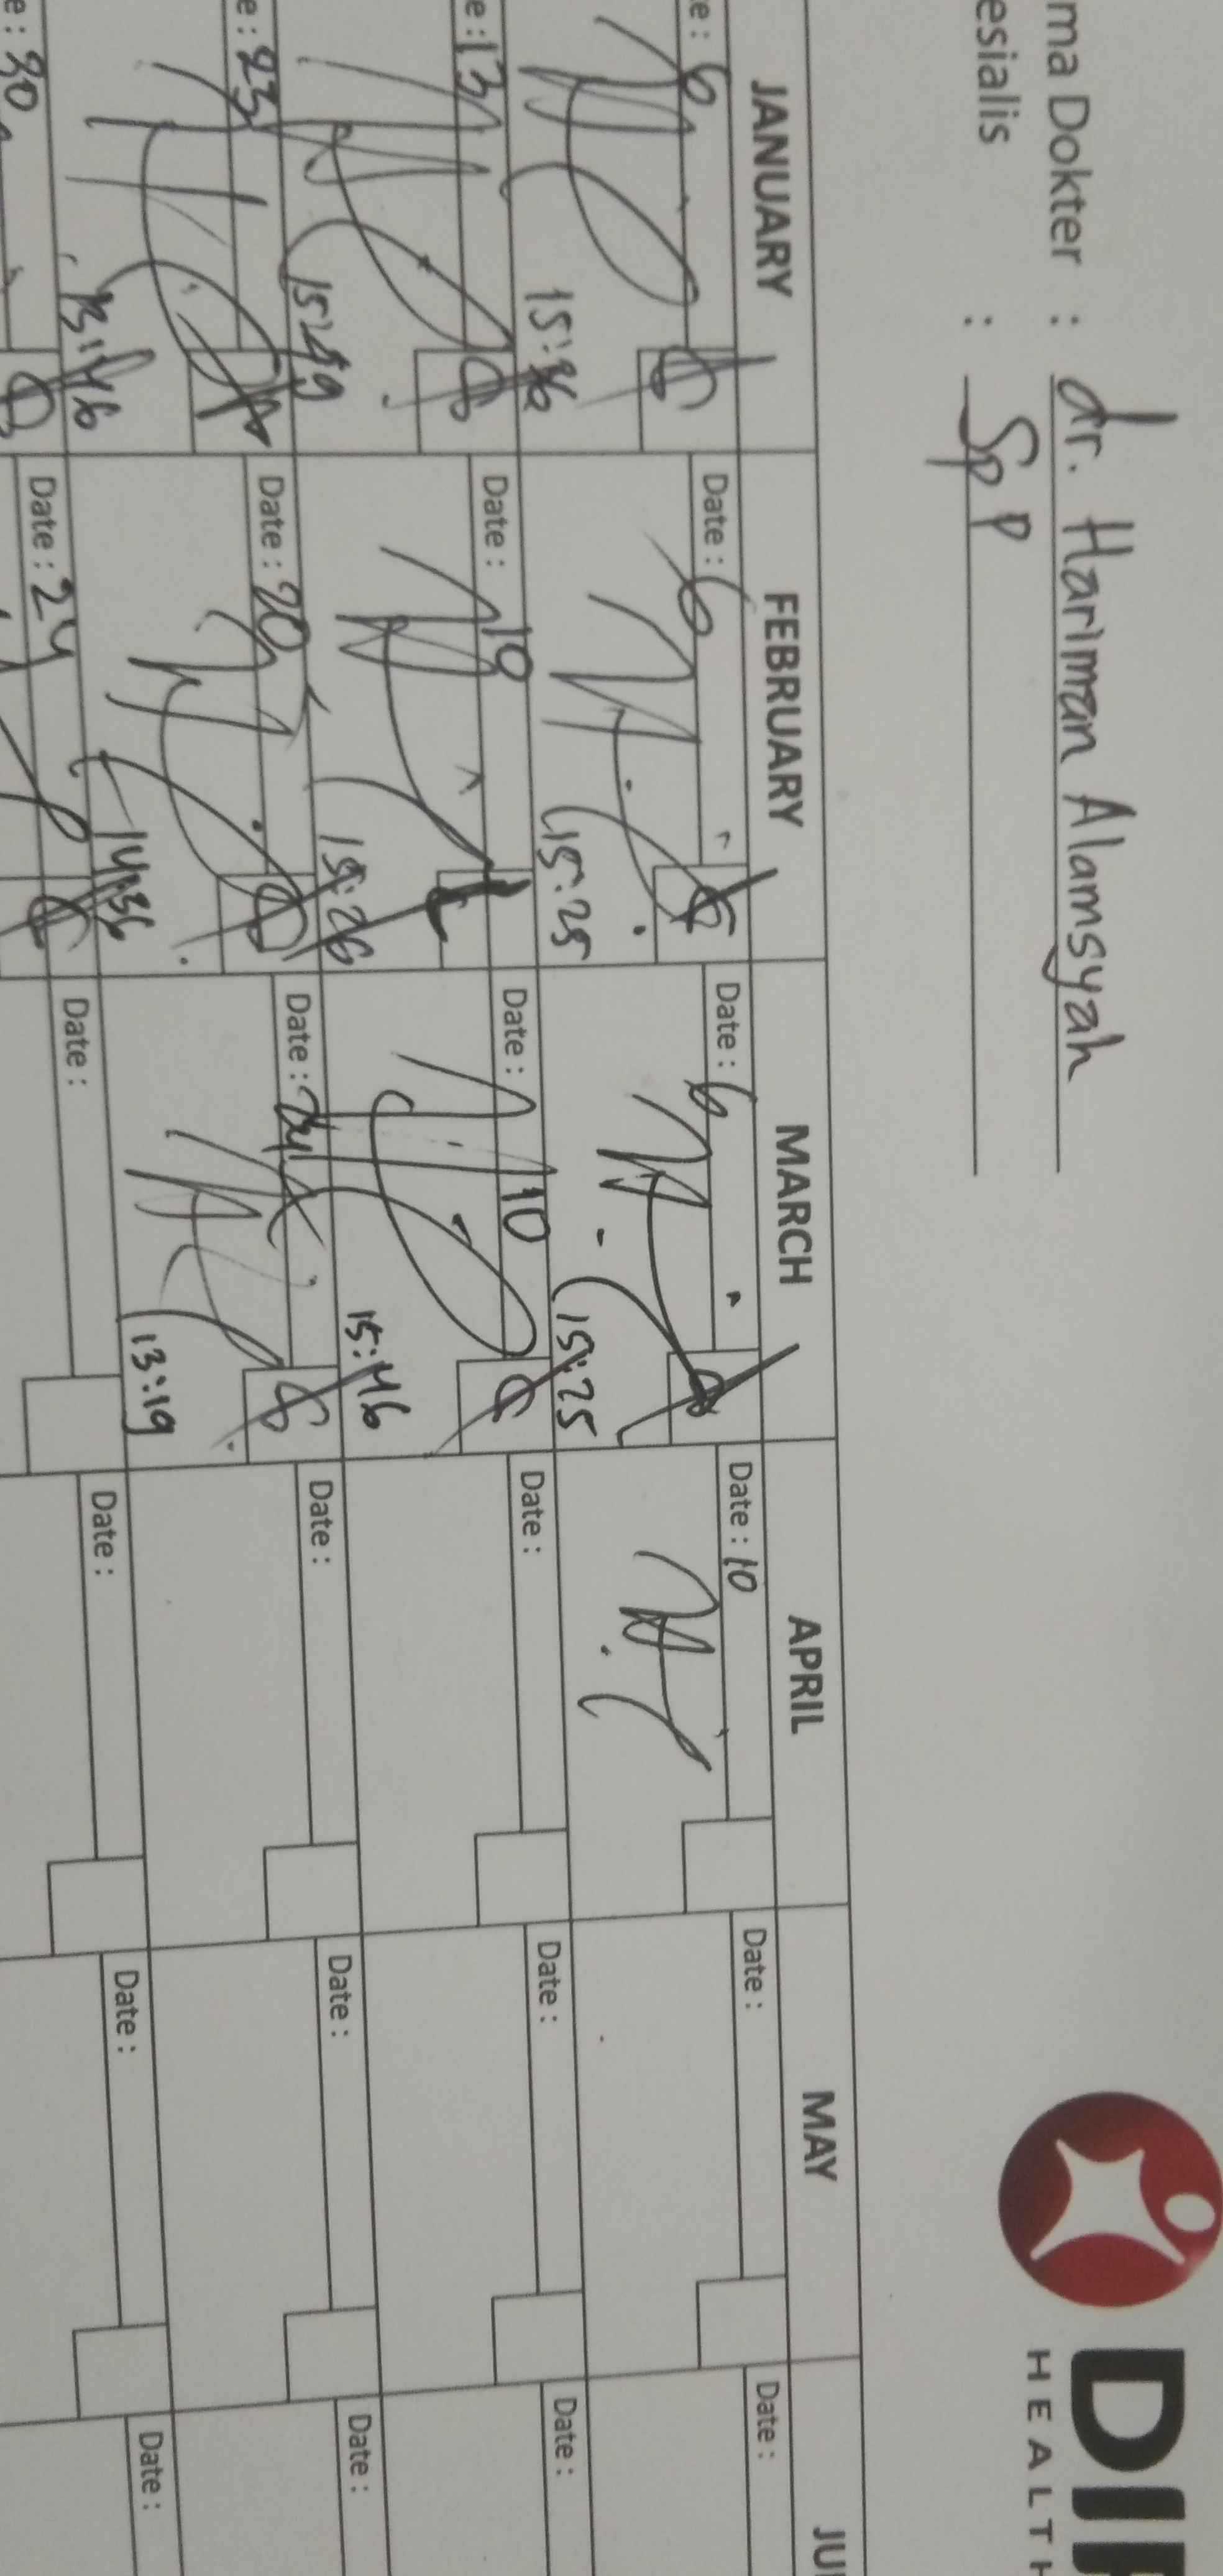 ma Dokter : dr. Hariman Alamsyah
esialis : SpP
DI
HEALTH
JANUARY FEBRUARY MARCH APRIL MAY JU
e : 6 Date : 6 Date : 6 Date : 10 Date : Date :
15:36 15:25 15:25
e : 13 Date : 10 Date : 10 Date : Date : Date :
15:49 15:26 15:46
e : 23 Date : 20 Date : 24 Date : Date : Date :
13:46 14:36 13:19
e : 30 Date : 24 Date : Date : Date : Date :